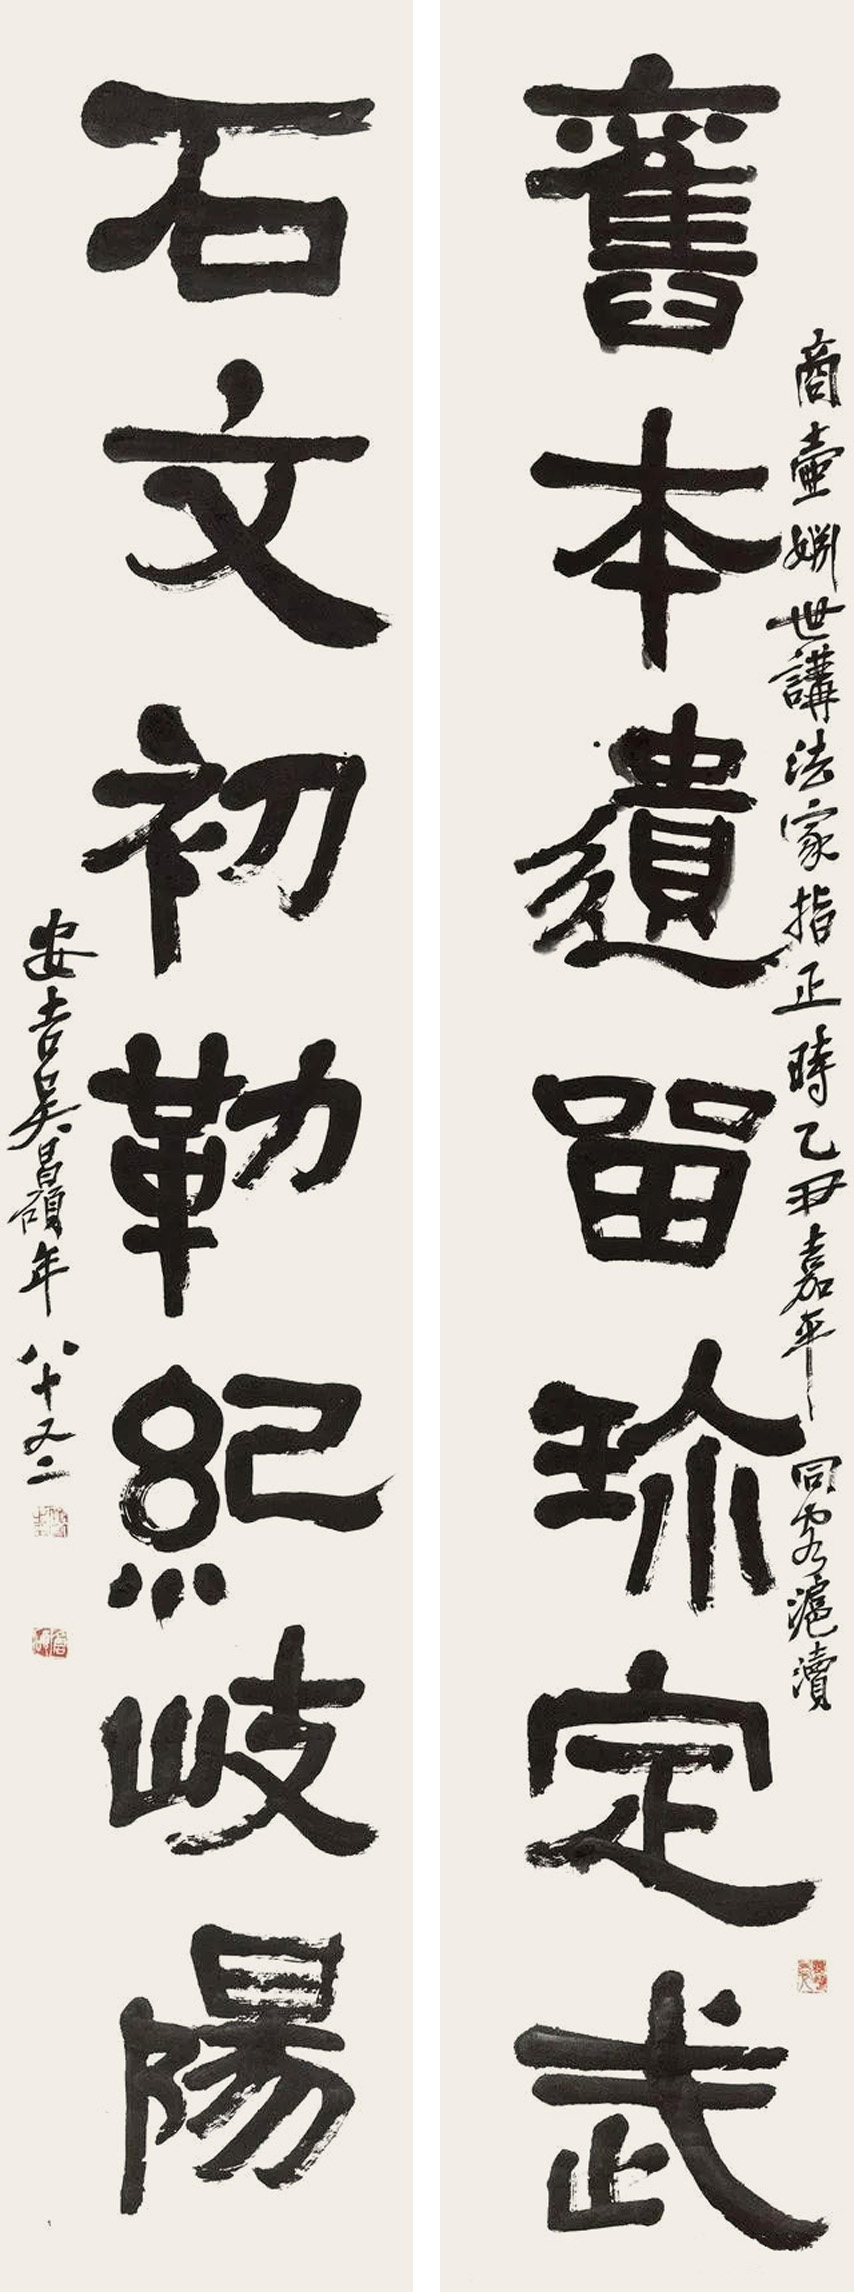 商壺姻世講法家指正時乙丑嘉平同客滬瀆
舊本遺留珍定武
石文初勒紀岐陽
安吉吳昌碩年八十又二